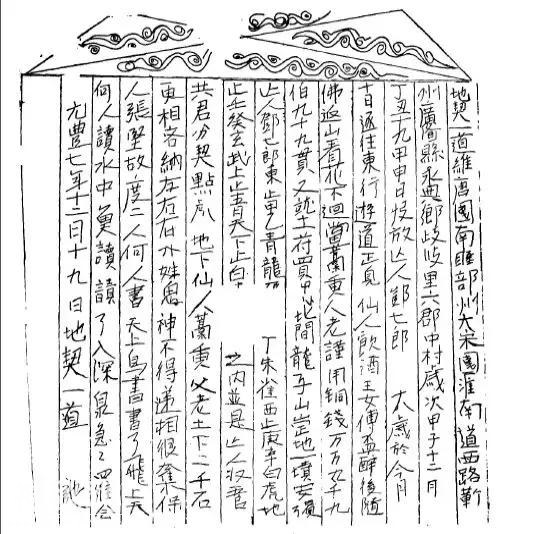 地契一道維唐國南贍部州大宋國淮南道西路蘄
州廣濟縣永興鄉歧岐里六郡中村歲次甲子十二月
丁丑十九甲申日歿放亡人郭七郎 大歲於今月
十日逐往東行遊道正見仙人飲酒玉女傳盃醉後隨
佛返山看花不迴當蒿黃人老謹用銅錢万万九千九
伯九十九貫又就土府買甲地間龍子山崗地一墳安㱔
亡人郭七郎東止甲乙青龍 丁朱雀西止庚辛白虎地
止壬癸玄武上止青天下止白 之內並是亡人收管
共君分契點㡯地下仙人蒿黃父老土下二千石
更相各納左右伯外妹鬼神不得递相侵奪保
人張堅故度二人何人書天上鳥書書了飛上天
何人讀水中魚讀讀了入深泉急々如律令
元豐七年十二月十九日地契一道